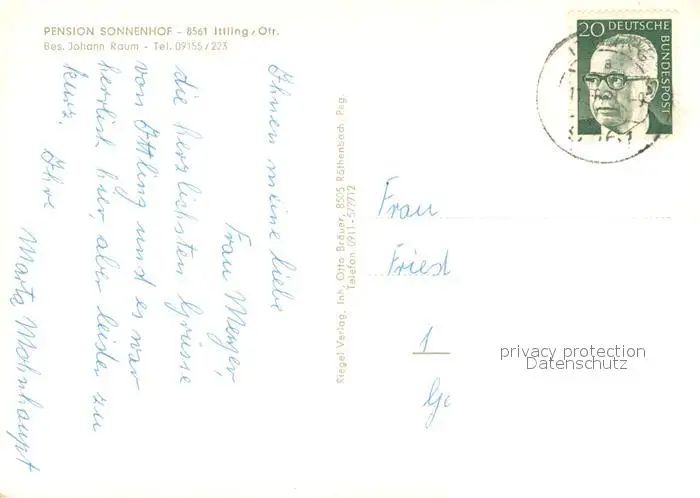 PENSION SONNENHOF - 8561 Ittling/Ofr.
Bes. Johann Raum - Tel. 09155/223
Ihnen meine liebe
Frau Menger,
die herzlichsten Grüsse
von Ittling und es war
herrlich hier, aber leider zu
kurz.
Ihre
Marta Mohnhaupt
Riegel Verlag, Inh. Otto Bräuer, 8505 Röthenbach Peg.
Telefon 0911-577712
20 DEUTSCHE
BUNDESPOST
Frau
Fried
1
privacy protection
Datenschutz